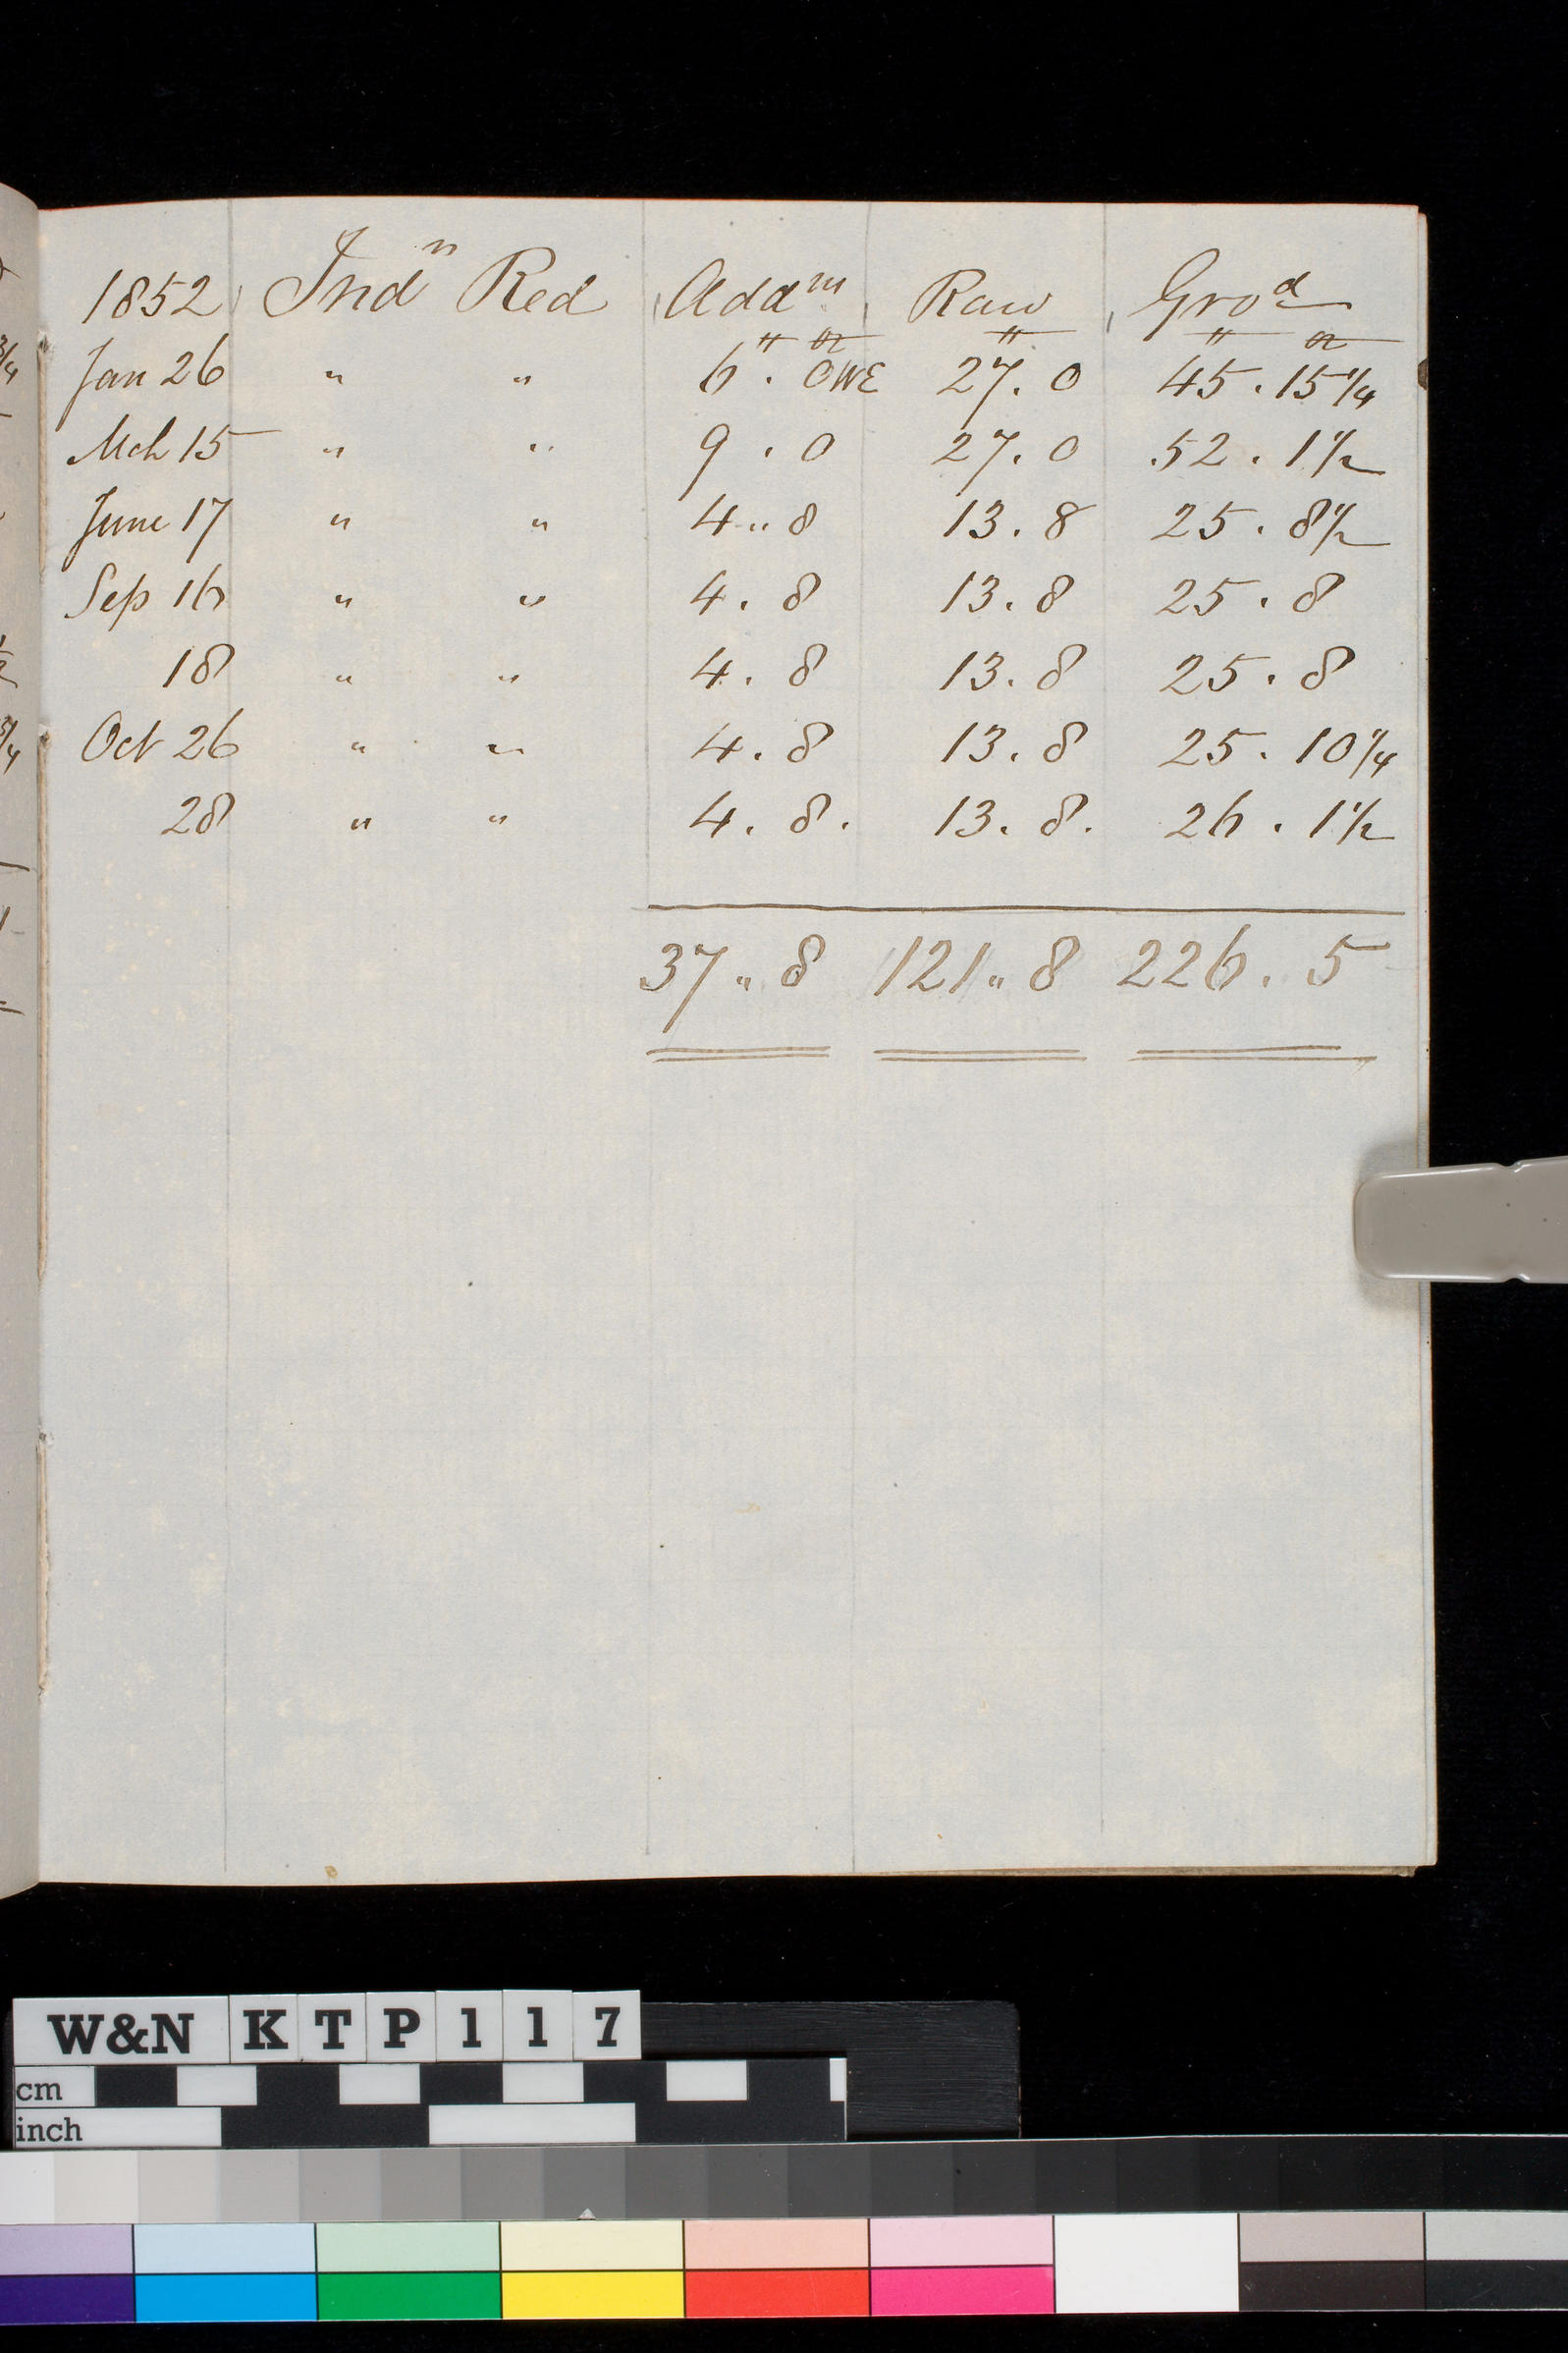 1852 Indⁿ Red Addᵐ Raw Groᵈ
Jan 26 " " 6 . 0 WE 27 . 0 45 . 15 1/4
Mch 15 " " 9 . 0 27 . 0 52 . 1 1/2
June 17 " " 4 " 8 13 . 8 25 . 8 1/2
Sep 16 " " 4 . 8 13 . 8 25 . 8
18 " " 4 . 8 13 . 8 25 . 8
Oct 26 " " 4 . 8 13 . 8 25 . 10 1/4
28 " " 4 . 8 . 13 . 8 . 26 . 1 1/2
37 " 8 121 " 8 226 . 5
W&N KTP117
cm
inch